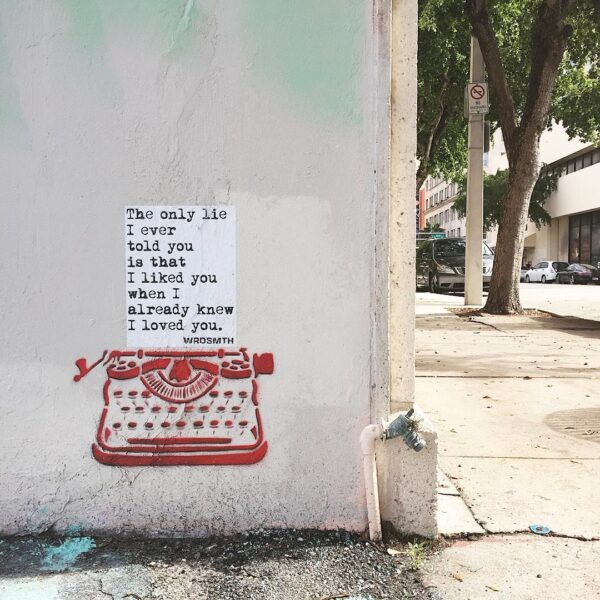 The only lie
I ever
told you
is that
I liked you
when I
already knew
I loved you.
WRDSMTH